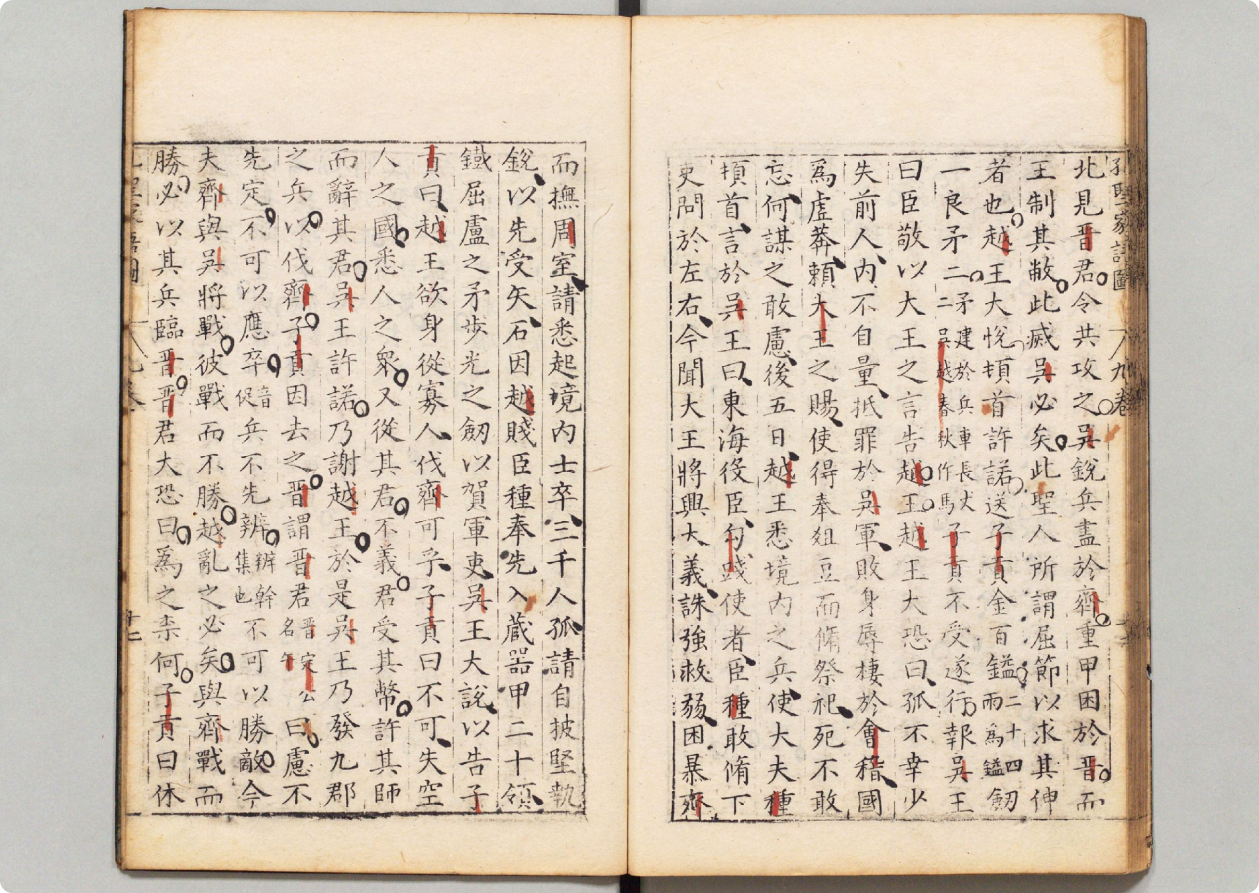 孔聖家語圖 八九卷
北見晋君令共攻之吳銳兵盡於齊重甲困於晋而
王制其敝此㓕吳必矣此聖人所謂屈節以求其伸
者也越王大恱頓首許諾送子貢金百鎰二十四兩為鎰劒
一良矛二矛建於兵車長丈二吳越春秋作馬子貢不受遂行報吳王
曰臣敬以大王之言告越王越王大恐曰孤不幸少
失前人内不自量抵罪於吳軍敗身辱棲於會稽國
爲虚莽頼大王之賜使得奉俎豆而脩祭祀死不敢
忘何謀之敢慮後五日越王悉境内之兵使大夫種
頓首言於吳王曰東海役臣勾踐使者臣種敢脩下
吏問於左右今聞大王將興大義誅強救弱困暴齊
而撫周室請悉起境内士卒三千人孤請自披堅執
銳以先受矢石因越賤臣種奉先人藏器甲二十領
鐵屈盧之矛步光之劒以賀軍吏吳王大說以告子
貢曰越王欲身從寡人伐齊可乎子貢曰不可失空
人之國悉人之衆又從其君不義君受其幣許其師
而辭其君吳王許諾乃謝越王於是吳王乃發九郡
之兵以伐齊子貢因去之晋謂晋君晋定公名午曰慮不
先定不可以應卒音促兵不先辨辨幹集也不可以勝敵今
夫齊與吳將戰彼戰而不勝越亂之必矣與齊戰而
勝必以其兵臨晋晋君大恐曰爲之柰何子貢曰休